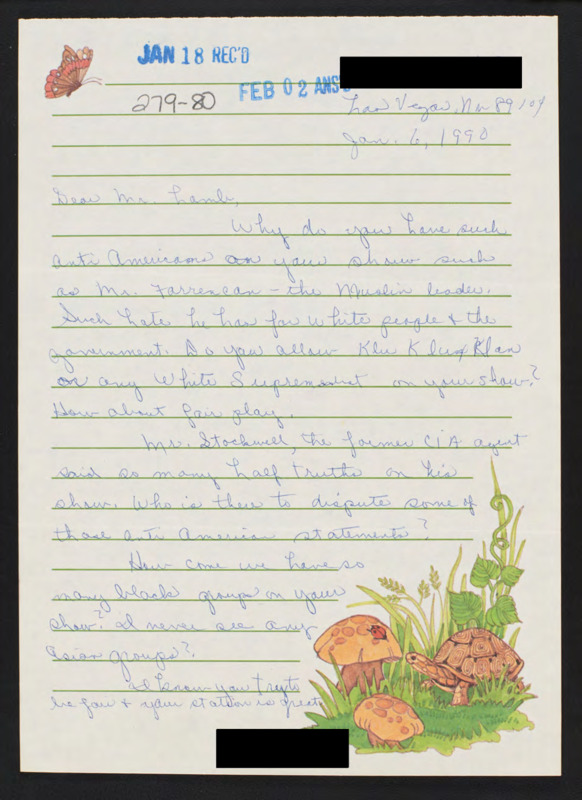 JAN 18 REC'D
279-80
FEB 02 ANS'D
Las Vegas, Nv 89104
Jan. 6, 1990
Dear Mr. Lamb,
Why do you have such
anti Americans on your show such
as Mr. Farrescan - the Muslin leader.
Such hate he has for white people & the
government. Do you allow Klu Klux Klan
or any White Supremacist on your show?
How about fair play.
Mr. Stockwell, the former CIA agent
said so many half truths on his
show. Who is there to dispute some of
those anti American statements?
How come we have so
many black groups on your
show? I never see any
Asian groups?
I know you try to
be fair & your station is great